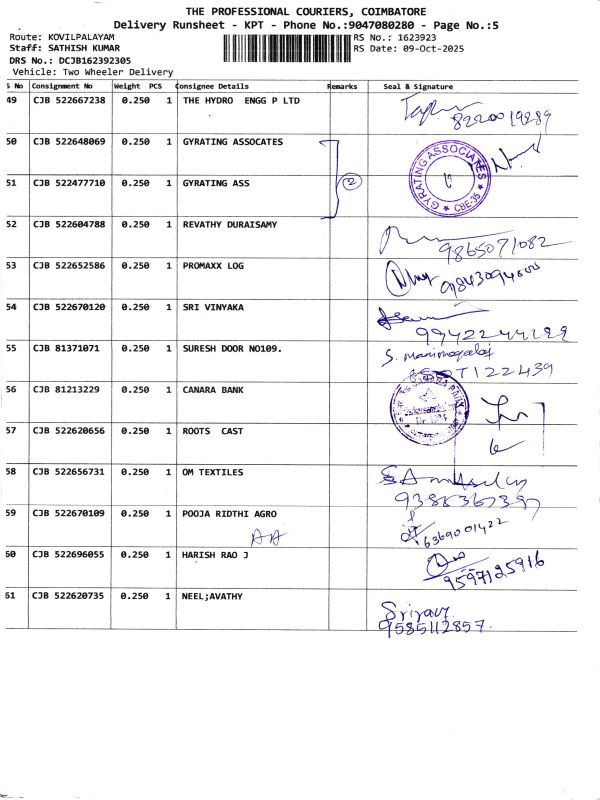 THE PROFESSIONAL COURIERS, COIMBATORE
Delivery Runsheet - KPT - Phone No.:9047080280 - Page No.:5
Route: KOVILPALAYAM RS No.: 1623923
Staff: SATHISH KUMAR RS Date: 09-Oct-2025
DRS No.: DCJB162392305
Vehicle: Two Wheeler Delivery
S No Consignment No Weight PCS Consignee Details Remarks Seal & Signature
49 CJB 522667238 0.250 1 THE HYDRO ENGG P LTD
8220019289
50 CJB 522648069 0.250 1 GYRATING ASSOCATES
GYRATING ASSOCIATES
CBE-35
2
51 CJB 522477710 0.250 1 GYRATING ASS
52 CJB 522604788 0.250 1 REVATHY DURAISAMY
9865071082
53 CJB 522652586 0.250 1 PROMAXX LOG
54 CJB 522670120 0.250 1 SRI VINYAKA
55 CJB 81371071 0.250 1 SURESH DOOR NO109.
56 CJB 81213229 0.250 1 CANARA BANK
57 CJB 522620656 0.250 1 ROOTS CAST
58 CJB 522656731 0.250 1 OM TEXTILES
59 CJB 522670109 0.250 1 POOJA RIDTHI AGRO
6369001422
60 CJB 522696055 0.250 1 HARISH RAO J
9597125916
61 CJB 522620735 0.250 1 NEEL;AVATHY
9585112857.